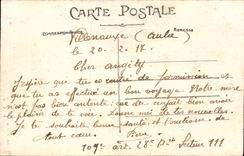 CARTE POSTALE
CORRESPONDANCE ADRESSE
Villenauxe (Aube)
le 20. 2. 17.
Cher
J'espère que tu es de permission et
que tu as effectué un bon voyage. Notre mère
n'est pas bien contente, car elle aurait bien avoir
le plaisir de te voir. Donne moi de tes nouvelles.
Je te souhaite bonne santé, et t'embrasse de
tout cœur.
109e art. 28e Secteur 111